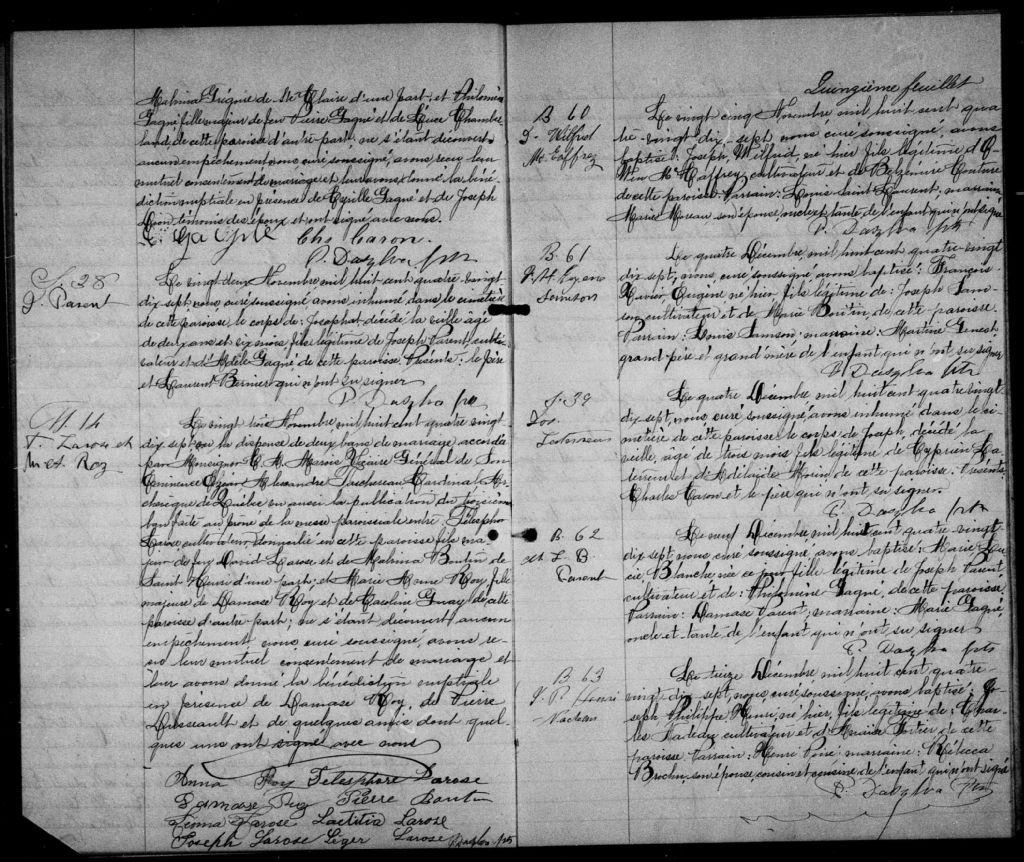 Malvina Grégoire de Ste Claire d'une part; et Philomène
Gagné fille majeur de feu Pierre Gagné et de Luce Chamber-
land, de cette paroisse d'autre part; ne s'étant découvert
aucun empêchement nous curé soussigné, avons reçu leur
mutuel consentement de mariage et leur avons donné la béné-
diction nuptiale en présence de Cyrille Gagné et de Joseph
Caron témoins des époux et ont signé avec nous.
Chs Caron.
P. Dasylva ptr
S. 28
J. Parent
Le vingt deux Novembre mil huit cent quatre-vingt
dix sept nous, curé soussigné avons inhumé dans le cimetière
de cette paroisse le corps de: Josaphat, décédé la veille âgé
de deux ans et six mois, fils légitime de Joseph Parent culti-
vateur et d'Adèle Gagné de cette paroisse. Présents: le père
et Laurent Bernier qui n'ont su signer
P. Dasylva ptr
M. 14
T. Larose et
M. A. Roy
Le vingt trois Novembre mil huit cent quatre vingt-
dix sept vu la dispense de deux bans de mariage accordée
par Monseigneur C. A. Marois Vicaire Général de Son
Eminence Elzéar Alexandre Taschereau Cardinal Ar-
chevêque de Québec vu aussi la publication du troisième
ban faite au prône de la messe paroissiale entre Télesphore
Larose, cultivateur domicilié en cette paroisse fils ma-
jeur de feu David Larose et de Malvina Boutin de
Saint Henri d'une part; et Marie Anna Roy fille
majeure de Damase Roy et de Caroline Guay de cette
paroisse d'autre part; ne s'étant découvert aucun
empêchement nous curé soussigné, avons re-
çu leur mutuel consentement de mariage et
leur avons donné la bénédiction nuptiale
en présence de Damase Roy, de Pierre
Dussault et de quelques amis dont quel-
ques uns ont signé avec nous
Anna Roy Telesphore Larose
Damase Roy Pierre
Larose Laetitia Larose
Joseph Larose Léger Larose P. Dasylva ptr
Quinzième feuillet
B 60
J. Wilfrid
Mc Caffrey
Le vingt cinq Novembre mil huit cent qua-
tre-vingt dix sept nous curé soussigné, avons
baptisé: Joseph Wilfrid, né hier fils légitime d'
Mc Caffrey, cultivateur et de Couture
de cette paroisse. Parrain: Louis Saint Laurent, marraine
Marie Moreau son épouse oncle et tante de l'enfant qui n'ont signé
P. Dasylva ptr
B. 61
F. X. Eugène
Samson
Le quatre Décembre mil huit cent quatre-vingt
dix sept, nous, curé soussigné avons baptisé: François
Xavier Eugène né hier fils légitime de: Joseph Sam-
son cultivateur et de Marie Boutin de cette paroisse.
Parrain: Louis Samson; marraine: Martine Genest
grand-père et grand'mère de l'enfant qui n'ont su signer
P. Dasylva ptr
S. 39
Jos.
Le quatre Décembre mil huit cent quatre vingt
dix sept, nous, curé soussigné, avons inhumé dans le ci-
metière de cette paroisse le corps de Joseph, décédé la
veille, âgé de trois mois fils légitime de Cyprien
et d'Adélaïde Morin de cette paroisse. Présents
Charles Caron et le père qui n'ont su signer.
P. Dasylva ptr
B. 62
M. L. B.
Parent
Le neuf Décembre mil huit cent quatre-vingt
dix sept, nous curé soussigné avons baptisé: Marie Lu-
cie, Blanche, née ce jour fille légitime de Joseph Parent
cultivateur et de: Philomène Gagné, de cette paroisse.
Parrain: Damase Parent; marraine: Marie Gagné
oncle et tante de l'enfant qui n'ont su signer
P. Dasylva ptr
B 63
J. P. Henri
Nadeau
Le treize Décembre mil huit cent quatre-
vingt dix sept, nous, curé soussigné, avons baptisé: Jo-
seph Philippe Henri, né hier, fils légitime de: Char-
les Nadeau cultivateur et d' Fortier de cette
paroisse Parrain: Henri marraine: Rébecca
Brochu, son épouse, cousin et cousine de l'enfant, qui n'ont signé
P. Dasylva Ptr